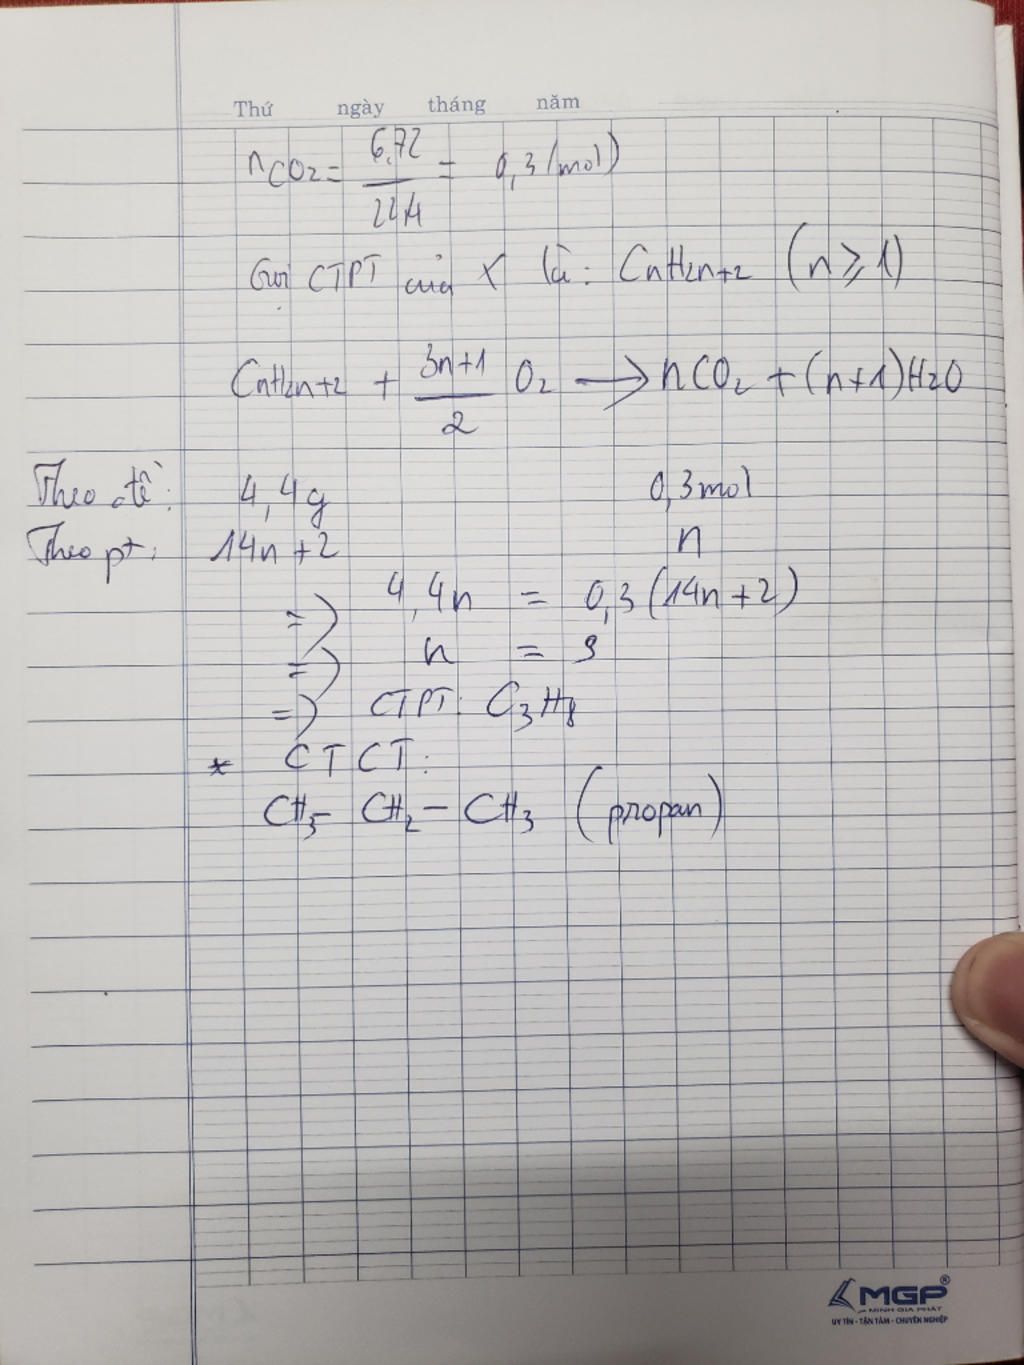 Thứ ngày tháng năm
nCO2 = 6,72 / 22,4 = 0,3 (mol)
Gọi CTPT của X là: CnH2n+2 (n ≥ 1)
CnH2n+2 + 3n+1 / 2 O2 → nCO2 + (n+1)H2O
Theo đề: 4,4g 0,3mol
Theo pt: 14n+2 n
=> 4,4n = 0,3(14n+2)
=> n = 3
=> CTPT: C3H8
* CTCT:
CH3- CH2 - CH3 (propan)
MGP®
MINH GIA PHÁT
UY TÍN - TẬN TÂM - CHUYÊN NGHIỆP